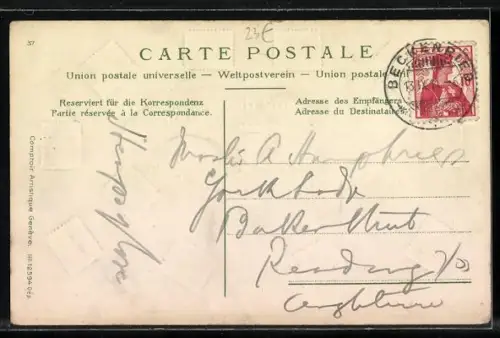 37
23€
CARTE POSTALE
Union postale universelle — Weltpostverein — Union postale
Reserviert für die Korrespondenz
Partie réservée à la Correspondance.
Adresse des Empfängers
Adresse du Destinataire
BECKENRIED
Comptoir Artistique Genève.
A Humphries
Baker Street
Reading
Angleterre